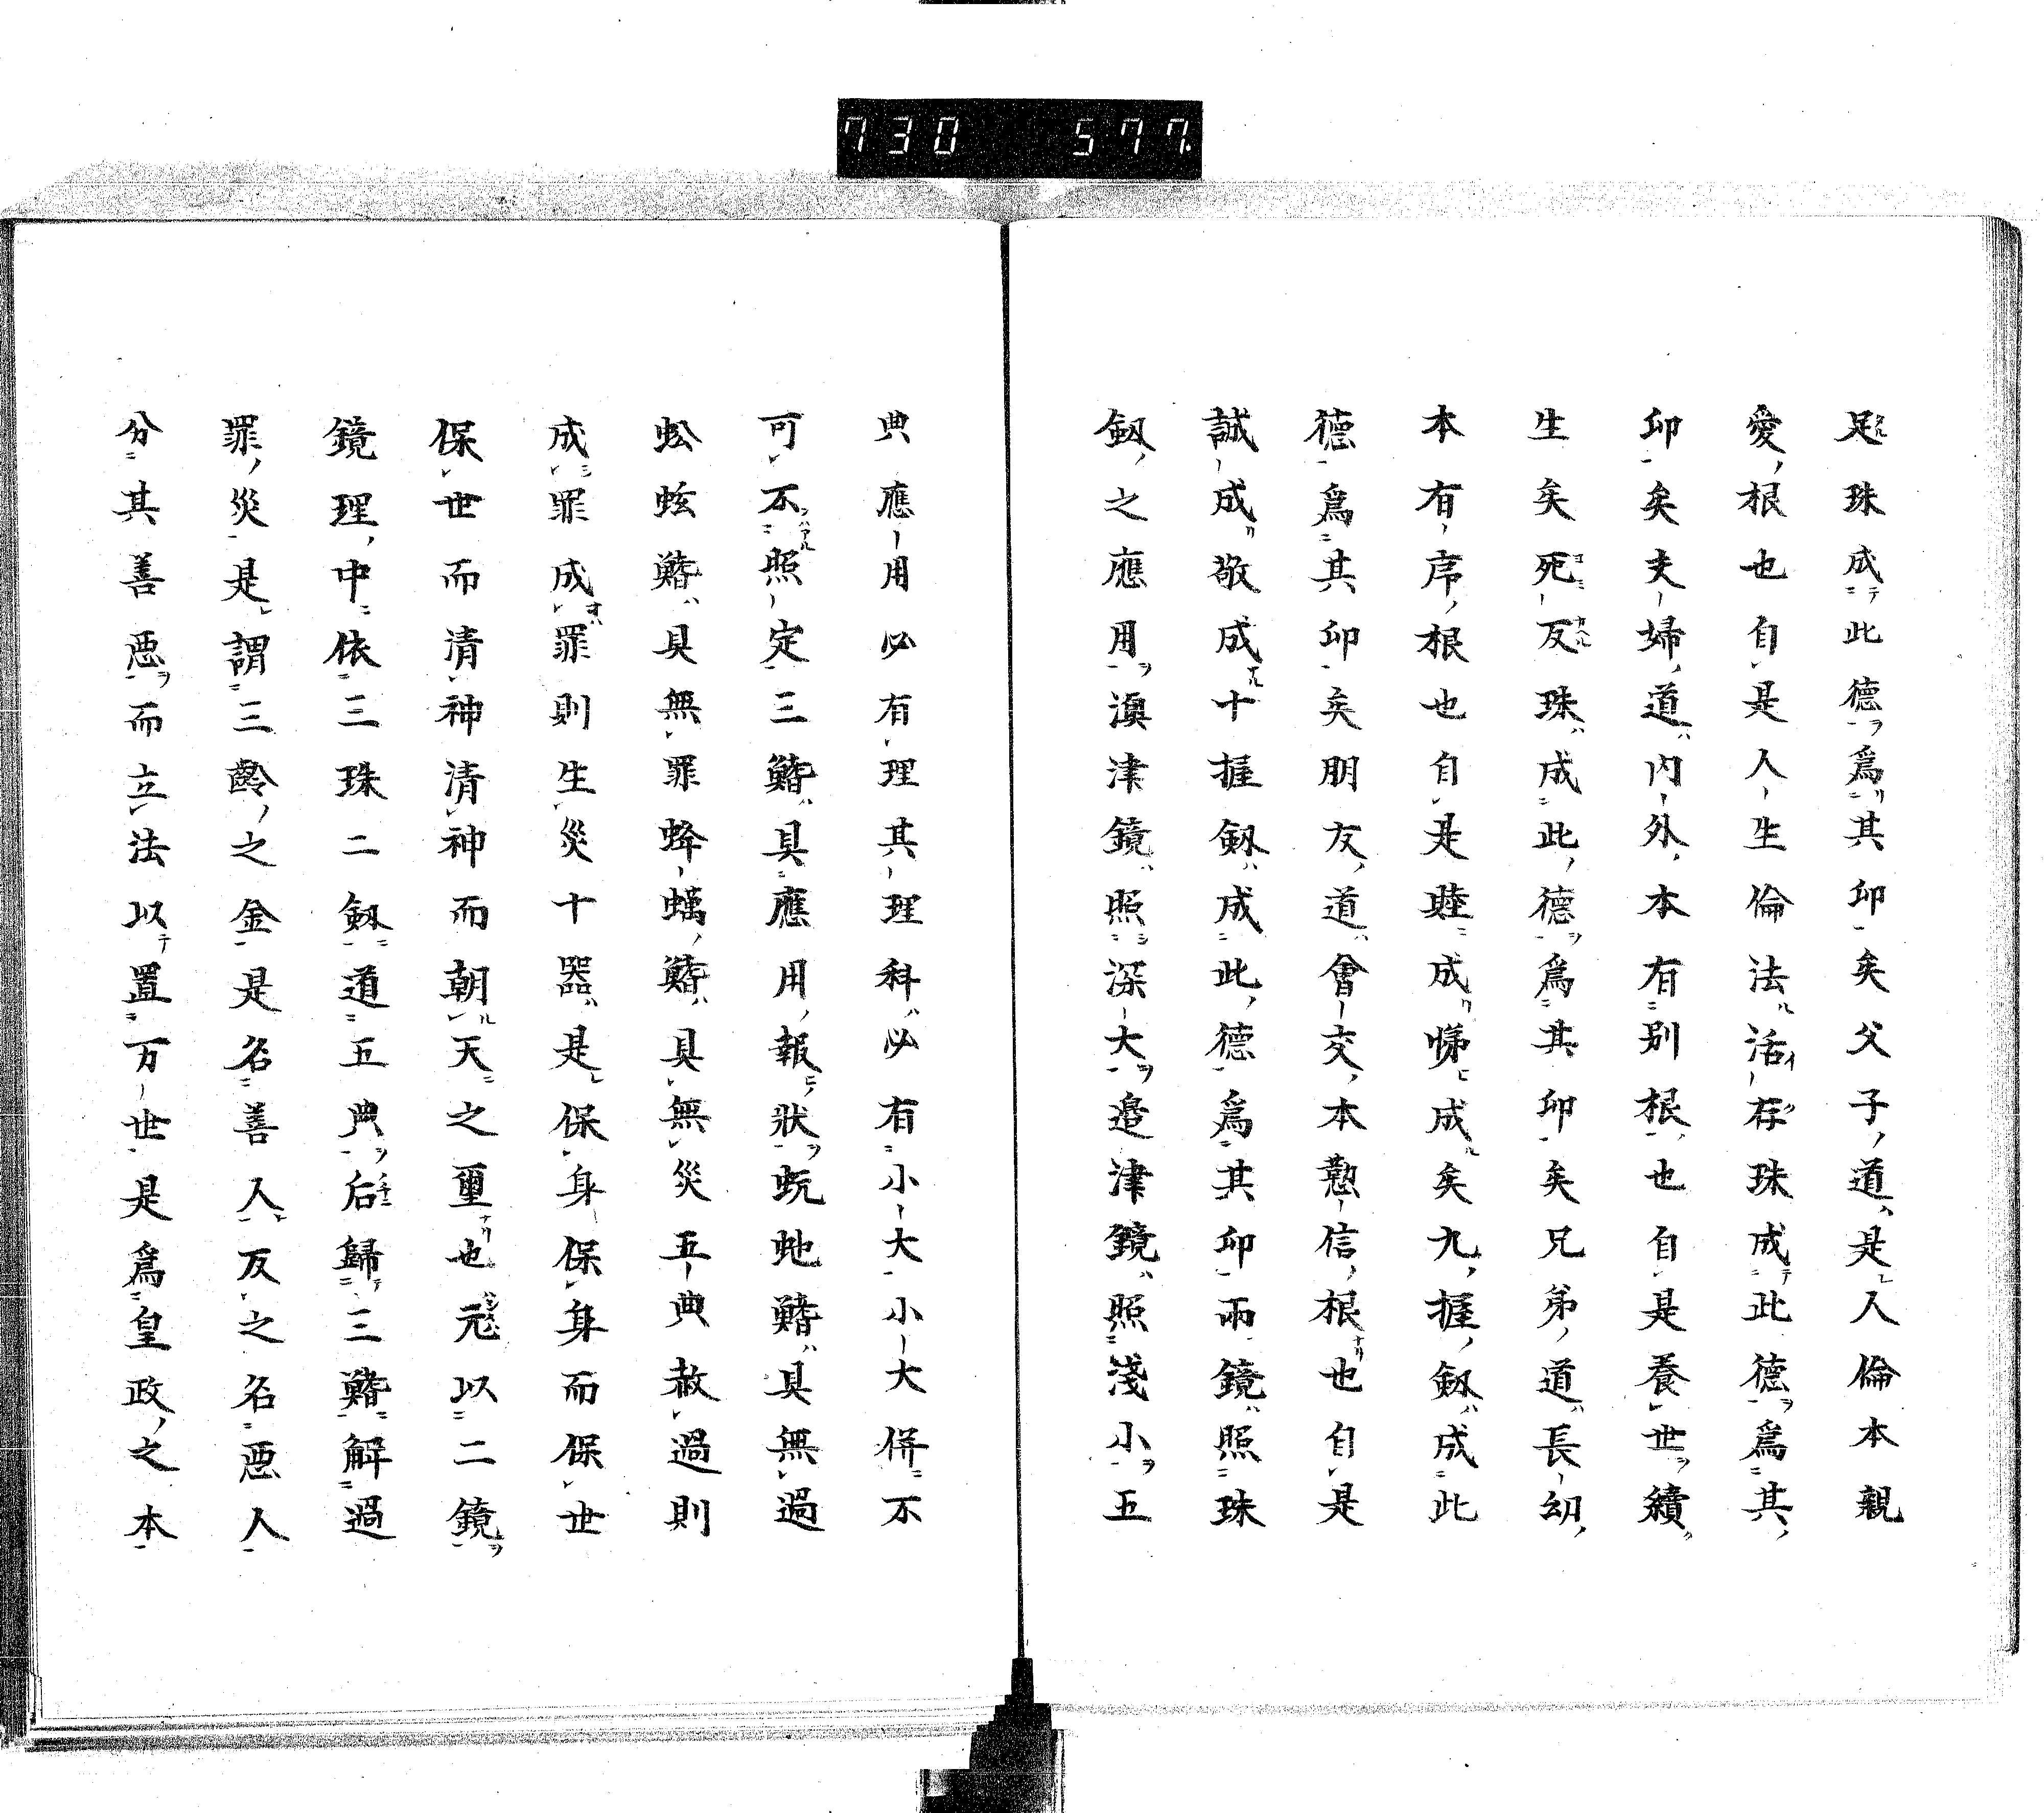 730 577
足珠成此德爲其卯矣父子道是人倫本親
愛根也自是人生倫法活存珠成此德爲其
卯矣夫婦道內外本有別根也自是養世續
生矣死反珠成此德爲其卯矣兄弟道長幼
本有序根也自是睦成悌成矣九握劔成此
德爲其卯矣朋友道會交本懃信根也自是
誠成敬成十握劔成此德爲其卯兩鏡照珠
劔之應用澳津鏡照深大邉津鏡照淺小五
典應用必有理其理科必有小大小大併不
可不照定三鰭具應用報狀蚖虵鰭具無過
蚣蚿鰭具無罪蜂蠇鰭具無災五典赦過則
成罪成罪則生災十器是保身保身而保世
保世而清神清神而朝天之璽也元以二鏡
鏡理中依三珠二劔道五典后歸三鰭解過
罪災是謂三齡之金是名善人反之名惡人
分其善惡而立法以置万世是爲皇政之本